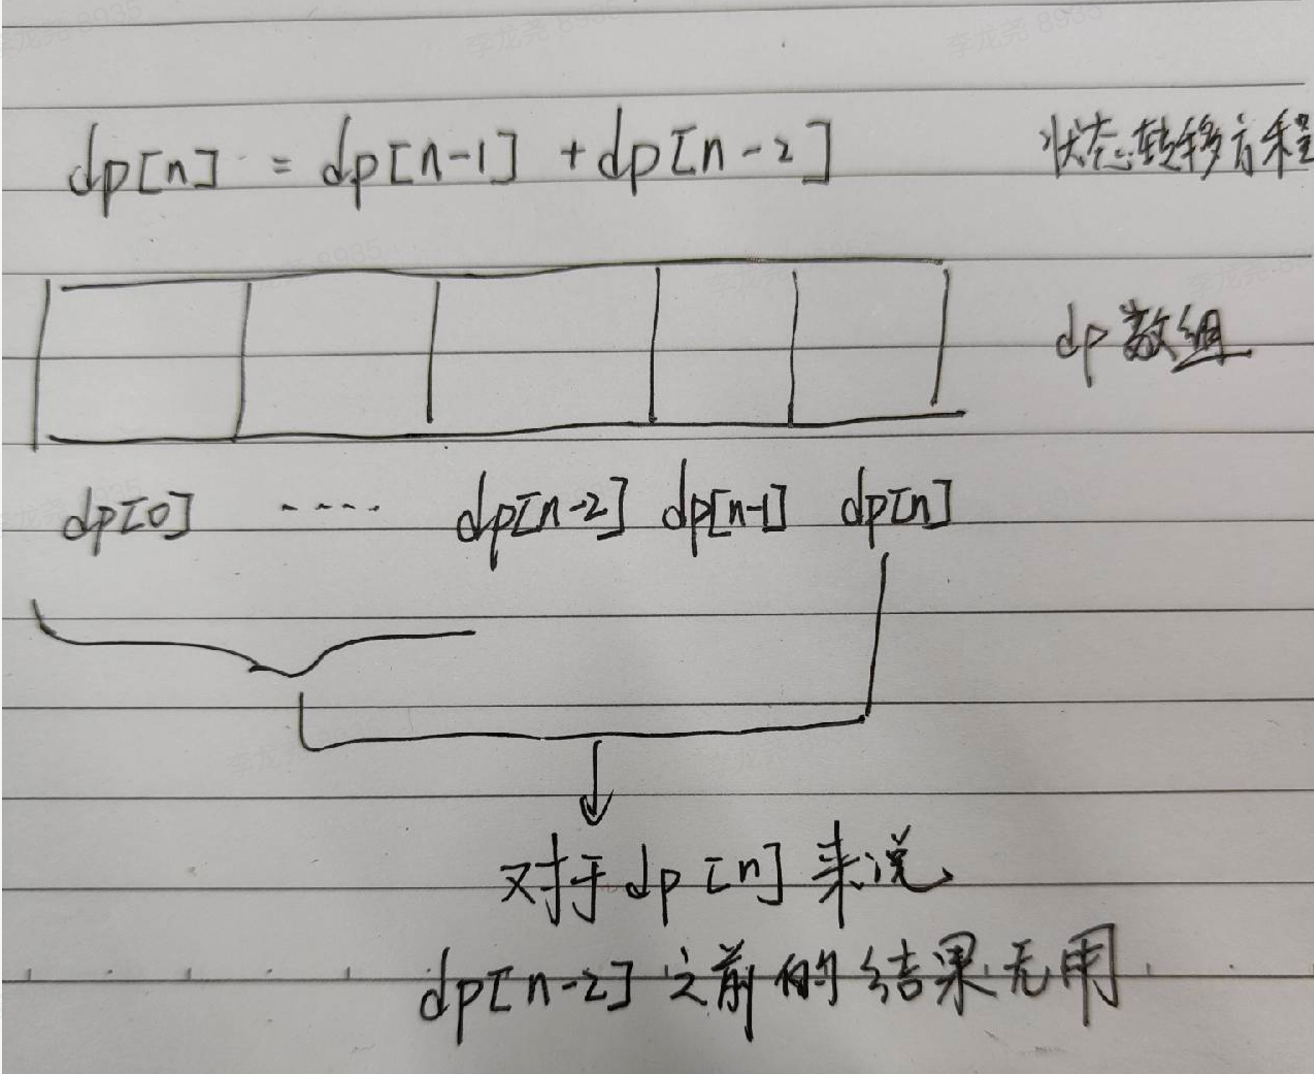 dp[n] = dp[n-1] + dp[n-2] 状态转移方程
dp数组
dp[0] ---- dp[n-2] dp[n-1] dp[n]
对于dp[n]来说
dp[n-2]之前的结果无用